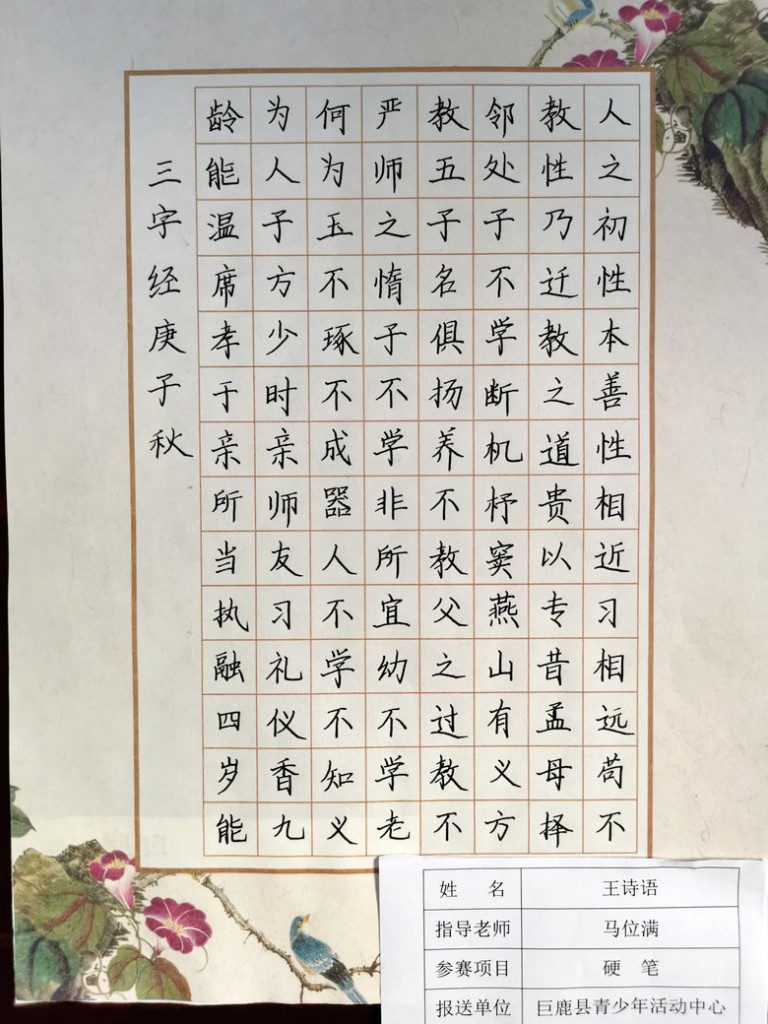 人之初性本善性相近习相远苟不
教性乃迁教之道贵以专昔孟母择
邻处子不学断机杼窦燕山有义方
教五子名俱扬养不教父之过教不
严师之惰子不学非所宜幼不学老
何为玉不琢不成器人不学不知义
为人子方少时亲师友习礼仪香九
龄能温席孝于亲所当执融四岁能
三字经庚子秋
姓 名 王诗语
指导老师 马位满
参赛项目 硬 笔
报送单位 巨鹿县青少年活动中心